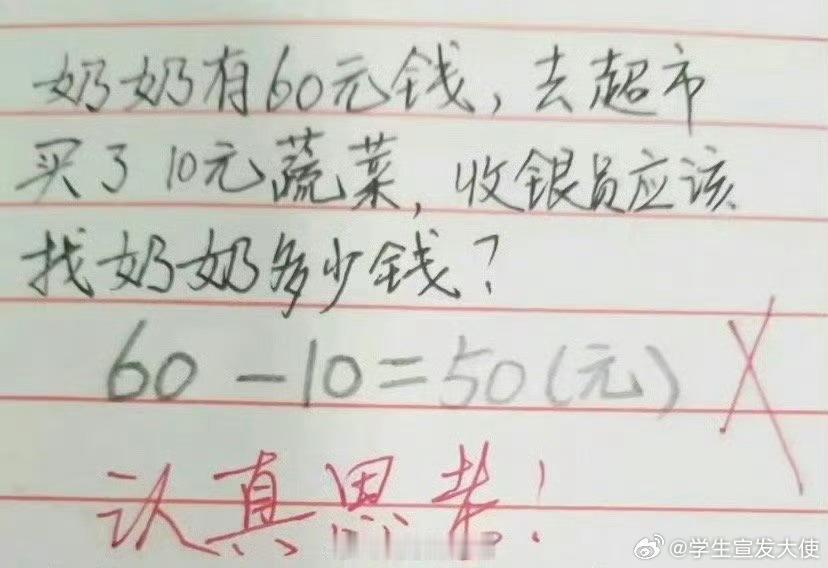 奶奶有60元钱，去超市
买了10元蔬菜，收银员应该
找奶奶多少钱？
60-10=50(元)
认真思考！
@学生宣发大使